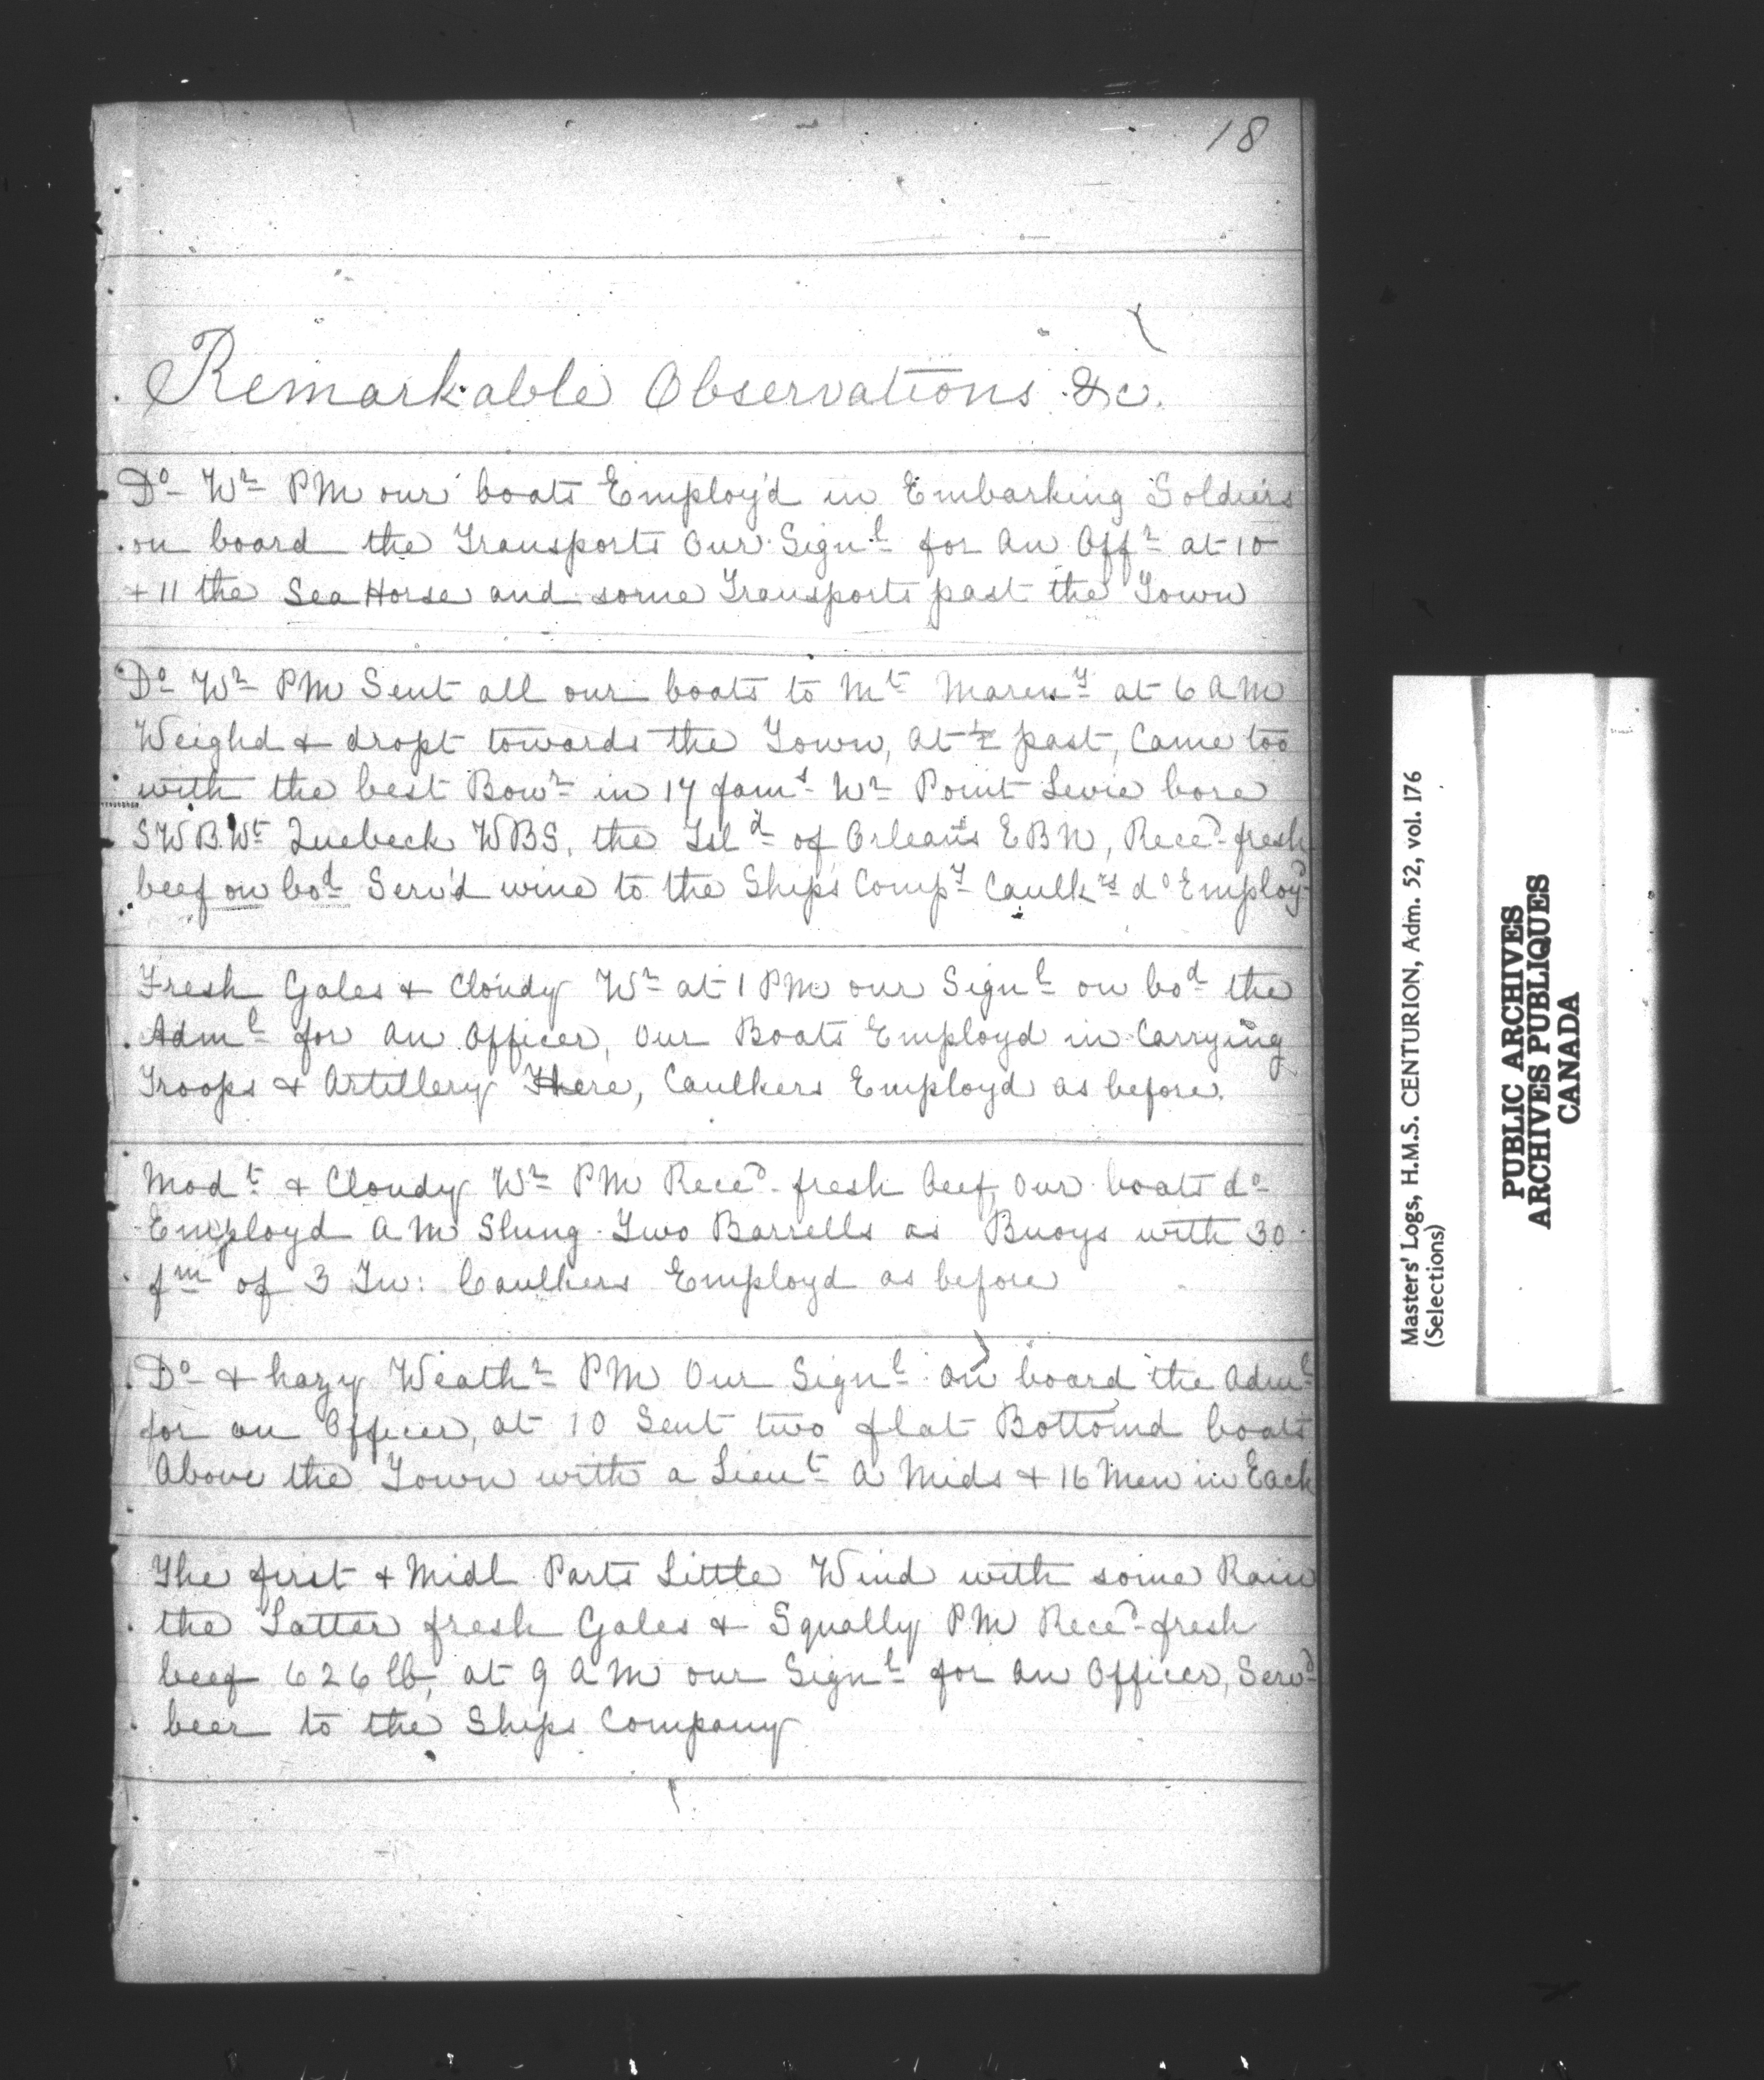 18
Remarkable Observations &c.
Do Wr PM our boats Employ'd in Embarking Soldiers
on board the Transports Our Signl for An Offr at 10
+ 11 the Sea Horse and some Transports past the Town
Do Wr PM Sent all our boats to Mt Marency at 6 AM
Weighd & dropt towards the Town, at ½ past, Came too
with the best Bowr in 17 fams Wr Point Levie bore
SWBWt Quebeck WBS, the Isld of Orleans EBN, Recd fresh
beef on bod Serv'd wine to the Ships Compy Caulkrs do Employd
Fresh Gales & Cloudy Wr at 1 PM our Signl on bod the
Adml for An Officer, Our Boats Employd in Carrying
Troops & Artillery There, Caulkers Employd as before.
Modt & Cloudy Wr PM Recd fresh beef, Our boats do
Employd AM Slung Two Barrells as Buoys with 30
fm of 3 In: Caulkers Employd as before
Do & hazy Weathr PM Our Signl on board the Adml
for an Officer, at 10 Sent two flat Bottomd boats
Above the Town with a Lieut A Mids & 16 Men in Each
The first & Midl Parts Little Wind with some Rain
the Latter fresh Gales & Squally PM Recd fresh
beef 626 lb, at 9 AM our Signl for An Officer, Servd
beer to the Ships Company
Masters' Logs, H.M.S. CENTURION, Adm. 52, vol. 176
(Selections)
PUBLIC ARCHIVES
ARCHIVES PUBLIQUES
CANADA